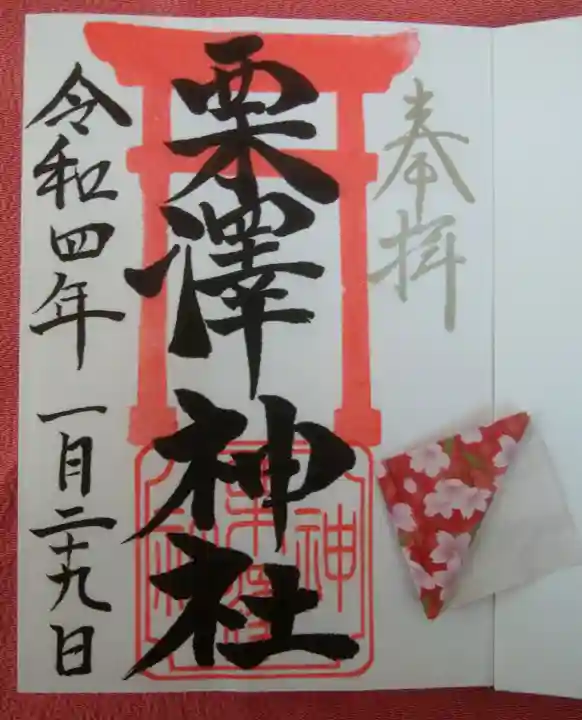 奉拝
栗澤神社
令和四年 一月二十九日